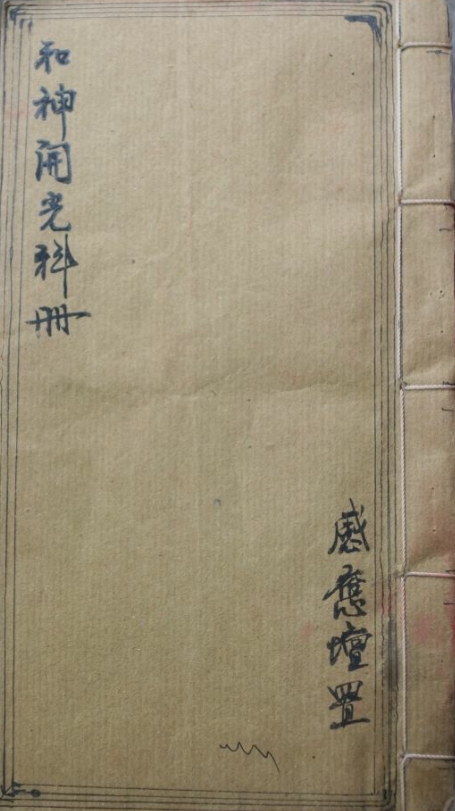 和神開光科册
感應壇置